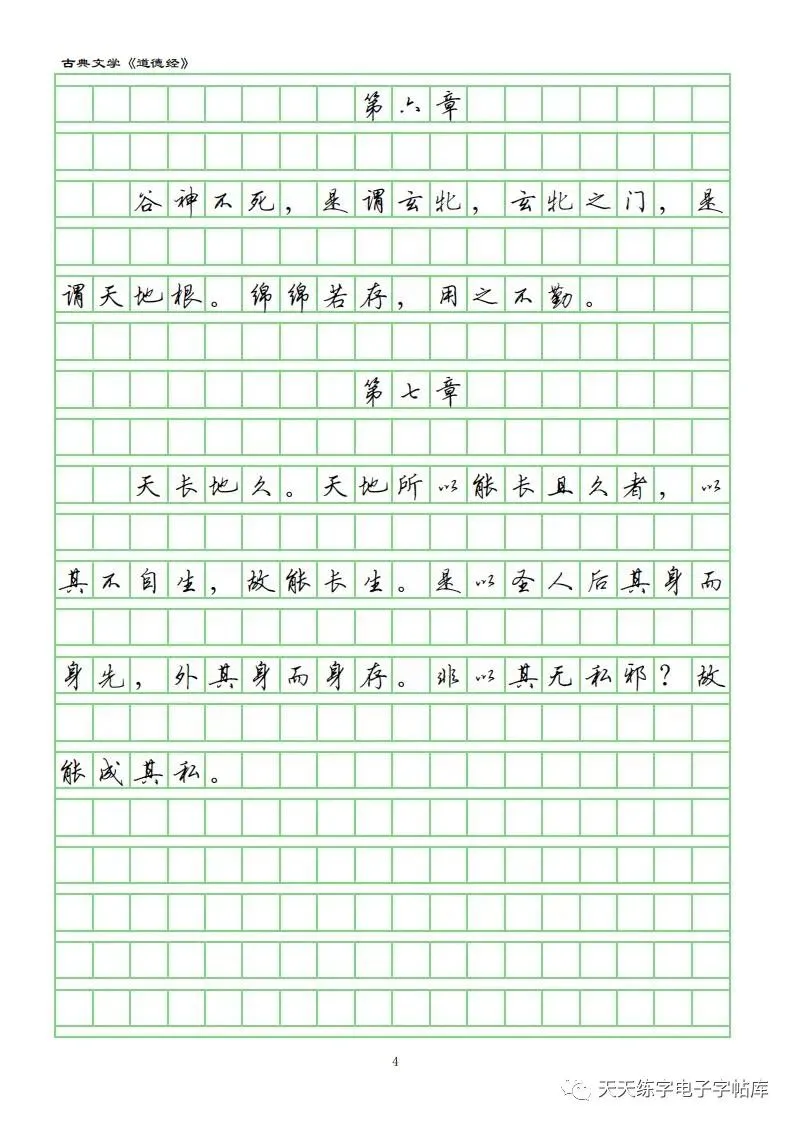 古典文学《道德经》
第六章
谷神不死，是谓玄牝，玄牝之门，是
谓天地根。绵绵若存，用之不勤。
第七章
天长地久。天地所以能长且久者，以
其不自生，故能长生。是以圣人后其身而
身先，外其身而身存。非以其无私邪？故
能成其私。
4
天天练字电子字帖库